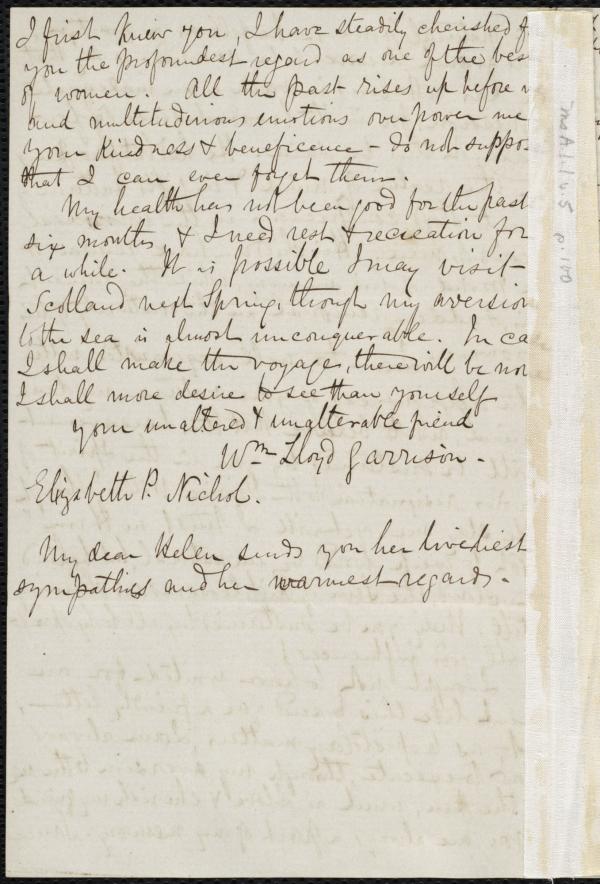 I first knew you, I have steadily cherished f
you the profoundest regard as one of the bes
of women. All the past rises up before
and multitudinous emotions overpower me
your kindness & beneficence – do not suppo
that I can ever forget them.
My health has not been good for the past
six months, & I need rest & recreation for
a while. It is possible I may visit
Scotland next Spring, though my aversion
to the sea is almost unconquerable. In ca
I shall make the voyage, there will be non
I shall more desire to see than yourself
your unaltered & unalterable friend
Wm. Lloyd Garrison.
Elizabeth P. Nichol.
My dear Helen sends you her liveliest
sympathies and her warmest regards.